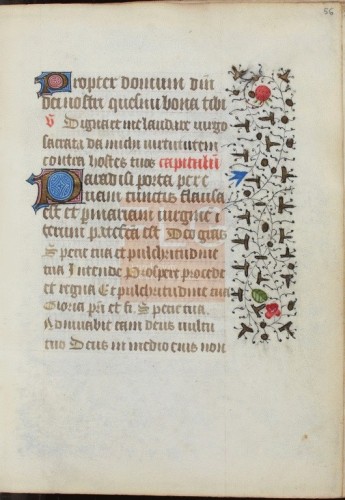 56
Propter domum dn̄i
dei nostri quesiui bona tibi
v̄ Dignare me laudare uirgo
sacrata da michi uirtutem
contra hostes tuos capitulū
Paradisi porta per e
uam cunctis clausa
est et p mariam uirginē i
terum patefca est Deo gr̄as
Specie tua et pulchritudine
tua Intende Prospere procede
et regna Et pulchritudine tua
Gloria pr̄i et fi. Specie tua.
Adiuuabit eam deus uultu
suo Deus in medio eius non